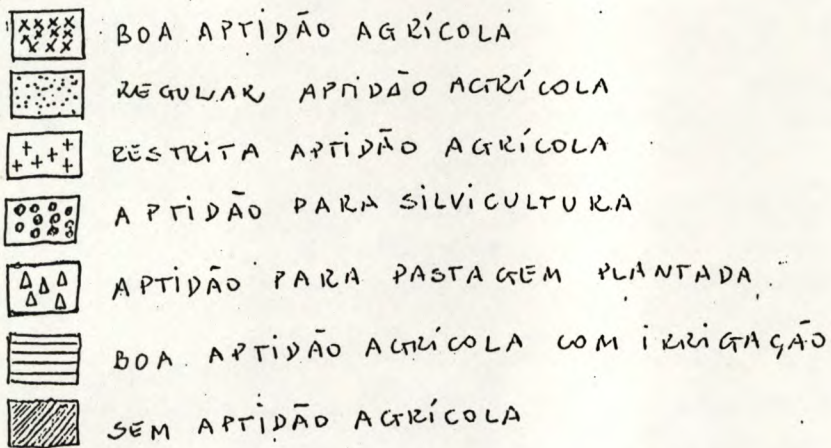 BOA APTIDÃO AGRÍCOLA
REGULAR APTIDÃO AGRÍCOLA
RESTRITA APTIDÃO AGRÍCOLA
APTIDÃO PARA SILVICULTURA
APTIDÃO PARA PASTAGEM PLANTADA
BOA APTIDÃO AGRÍCOLA COM IRRIGAÇÃO
SEM APTIDÃO AGRÍCOLA